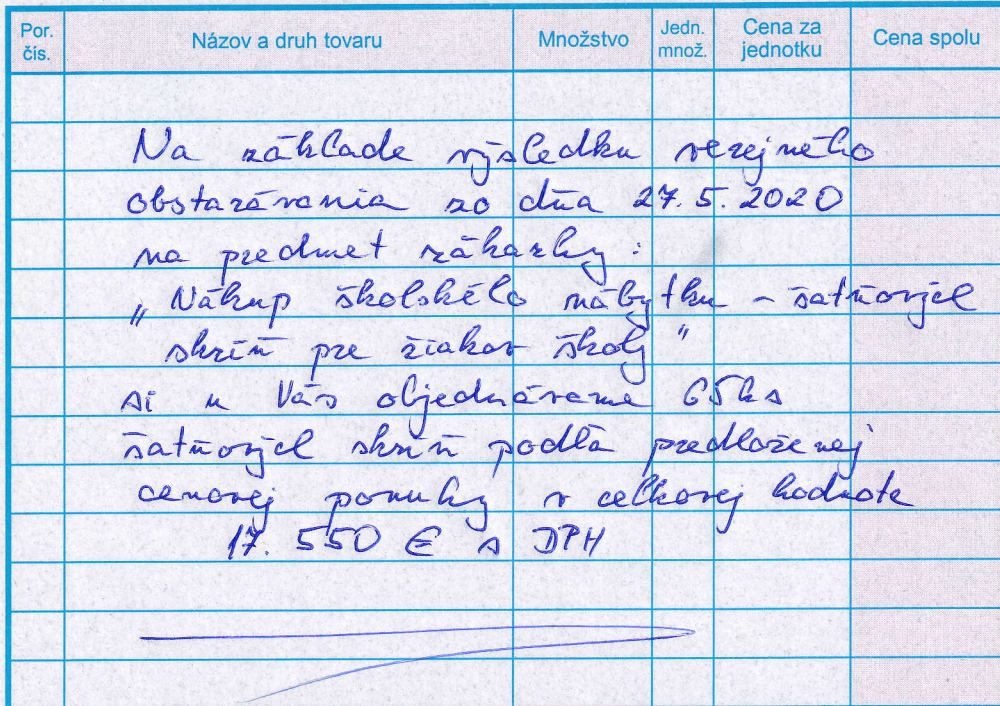 Por. čís.
Názov a druh tovaru
Množstvo
Jedn. množ.
Cena za jednotku
Cena spolu
Na základe výsledku verejného
obstarávania zo dňa 27.5.2020
na predmet zákazky:
„Nákup školského nábytku - šatňových
skríň pre žiakov školy"
si u Vás objednávame 65ks
šatňových skríň podľa predloženej
cenovej ponuky v celkovej hodnote
17.550 € s DPH